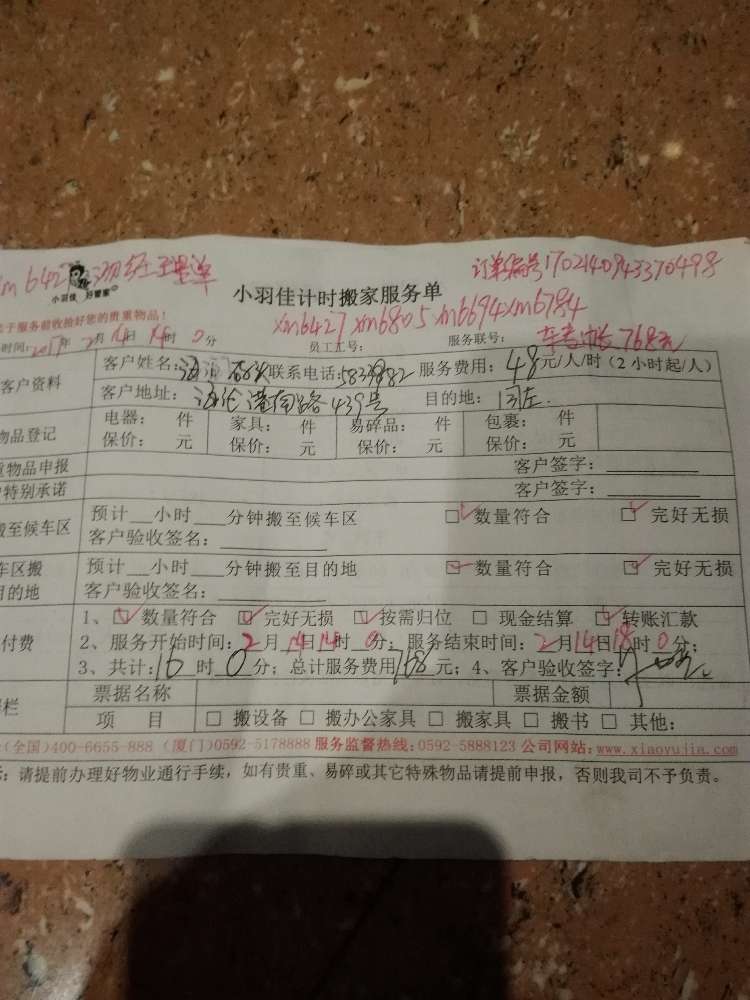 订单编号1702140943370498
小羽佳 好管家
小羽佳计时搬家服务单
xm6427 xm6805 xm6694 xm6784
于服务前收拾好您的贵重物品!
时间:2017年2月14日14时0分 员工工号: 服务联号: 768元
客户资料
客户姓名: 联系电话: 服务费用:48元/人/时(2小时起/人)
客户地址: 沧港南路439号 目的地:
物品登记
电器: 件 家具: 件 易碎品: 件 包裹: 件
保价: 元 保价: 元 保价: 元 保价: 元
重物品申报 客户签字:
特别承诺 客户签字:
搬至候车区
预计__小时___分钟搬至候车区 □数量符合 □完好无损
客户验收签名:
车区搬
目的地
预计__小时___分钟搬至目的地 □数量符合 □完好无损
客户验收签名:
付费
1、□数量符合 □完好无损 □按需归位 □现金结算 □转账汇款
2、服务开始时间:2月14日14时0分;服务结束时间:2月14日18时0分;
3、共计:16时0分;总计服务费用768元;4、客户验收签字:
栏
票据名称 票据金额
项 目 □搬设备 □搬办公家具 □搬家具 □搬书 □其他:
(全国)400-6655-888 (厦门)0592-5178888 服务监督热线:0592-5888123 公司网站:www.xiaoyujia.com
:请提前办理好物业通行手续,如有贵重、易碎或其它特殊物品请提前申报,否则我司不予负责。